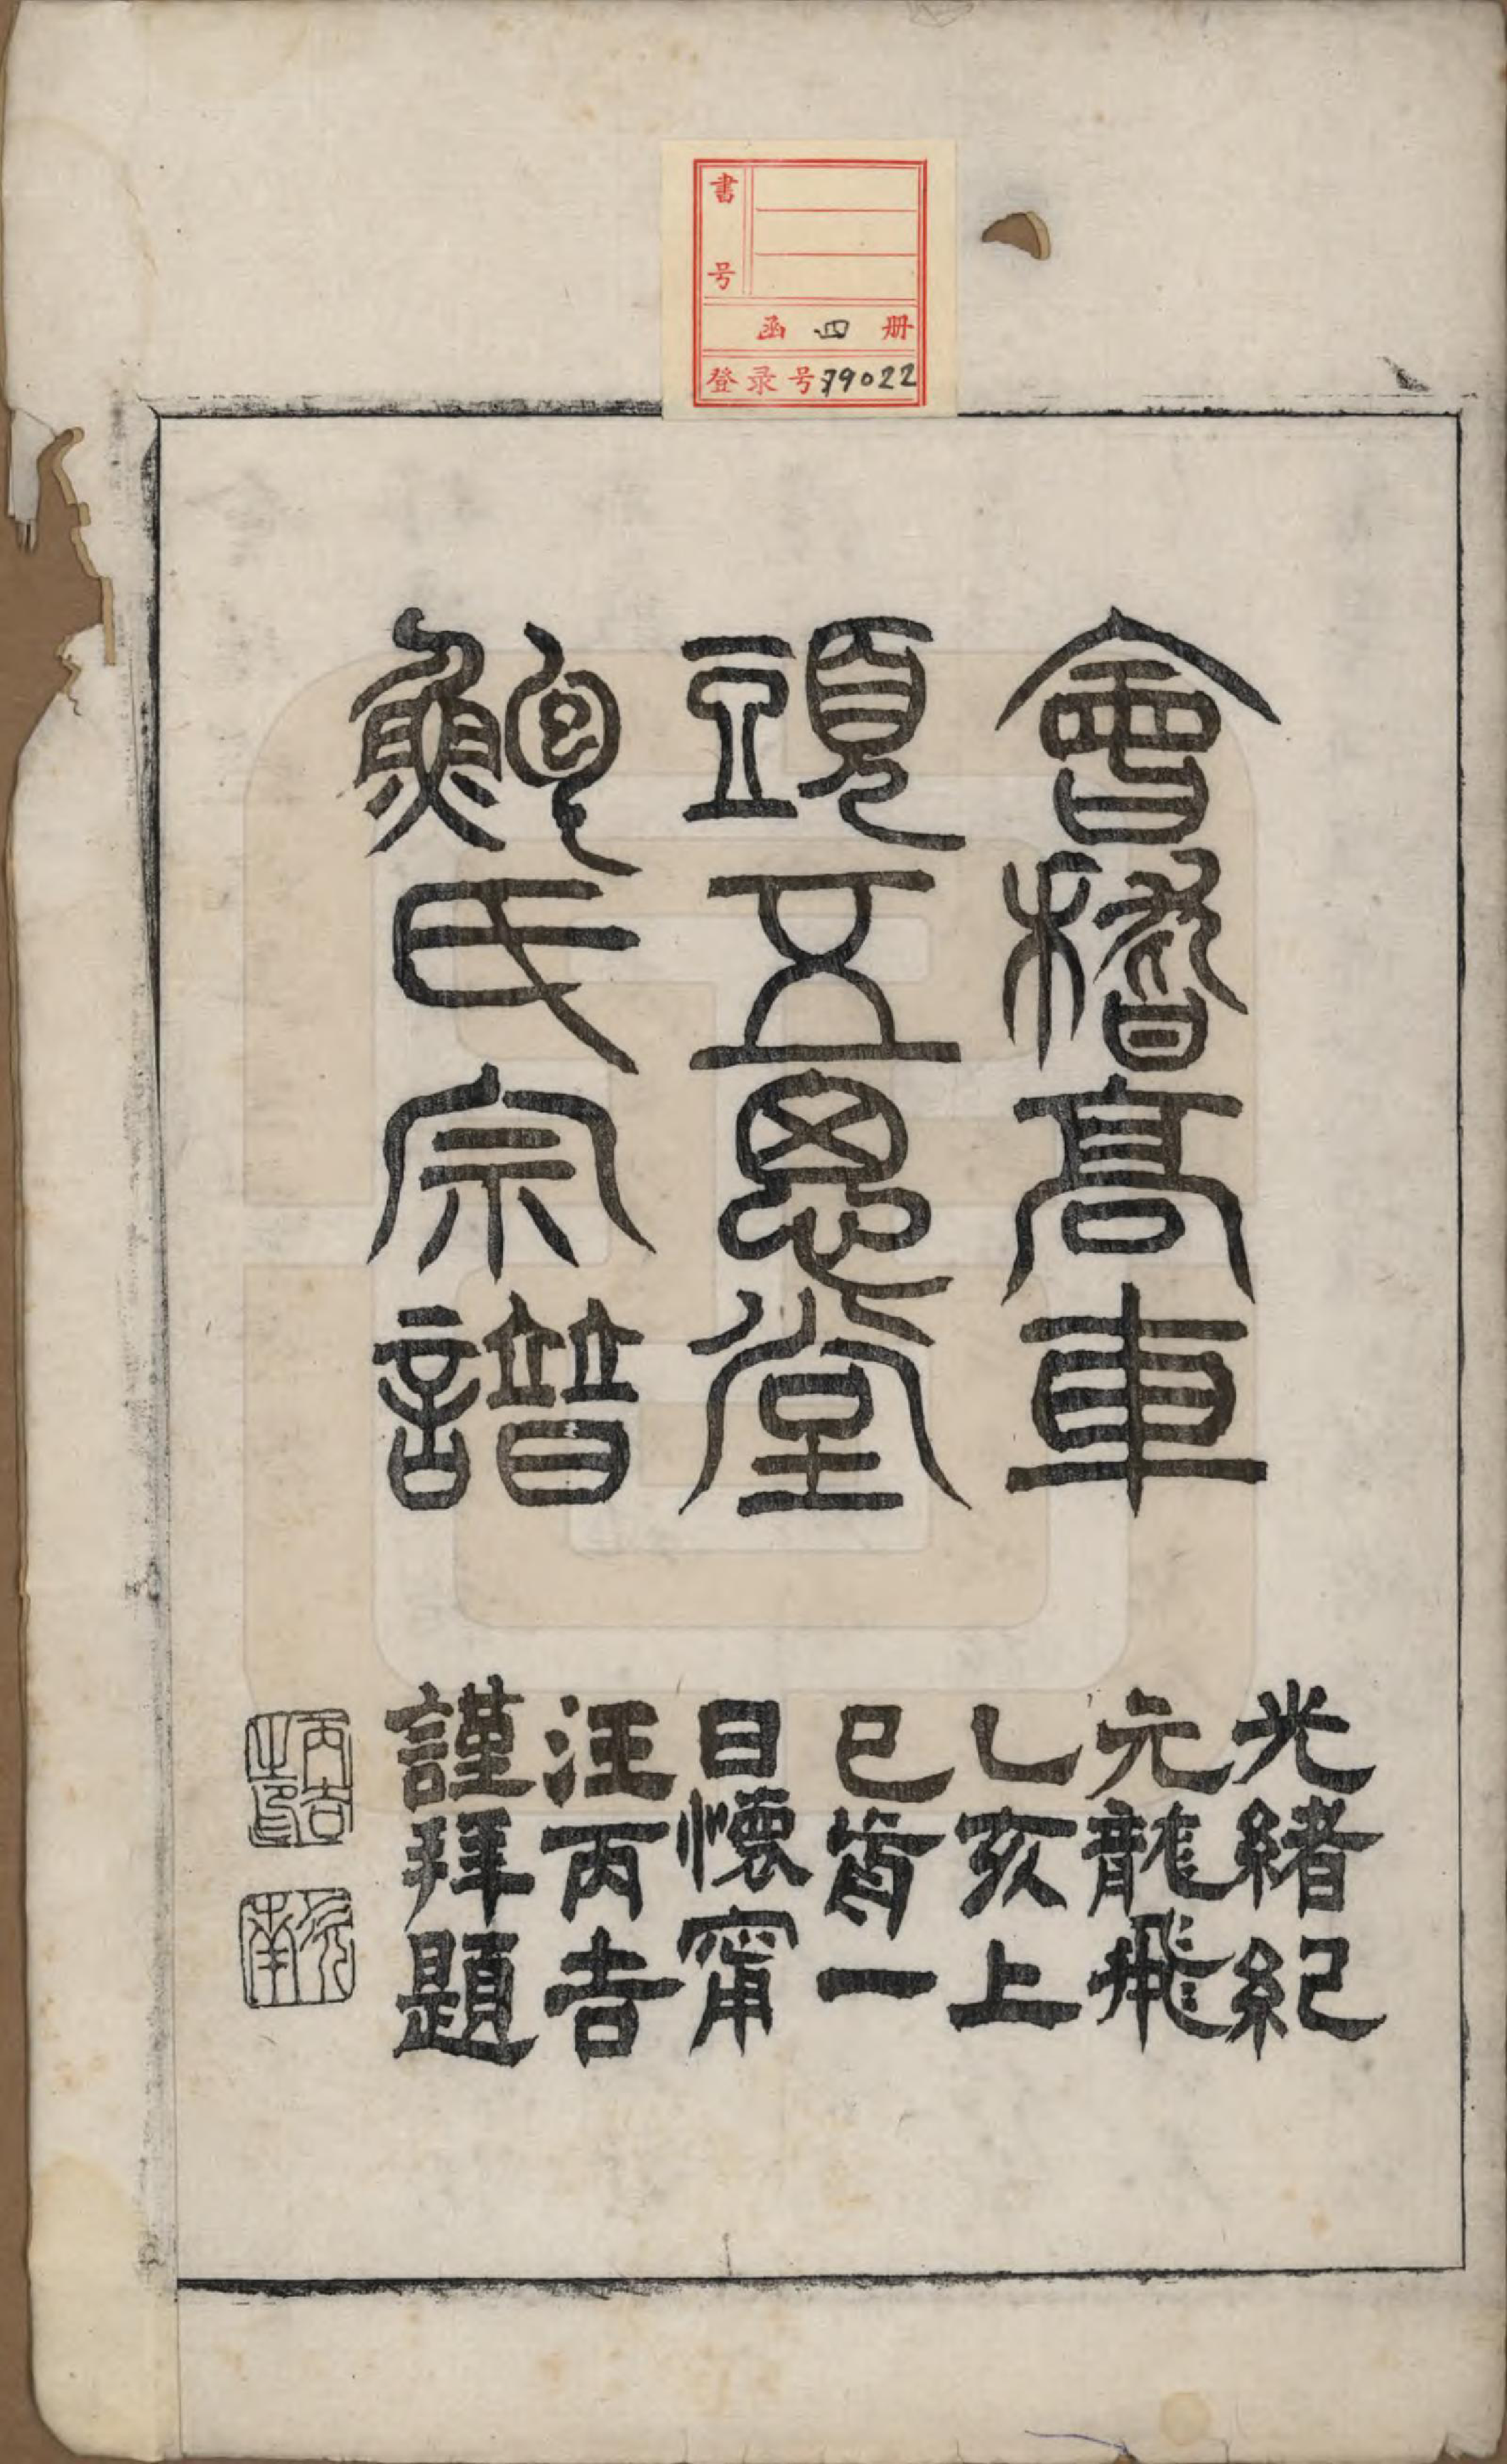 書号
函 四 册
登录号 79022
會稽高車
頭五思堂
鮑氏宗譜
光緒紀
元龍飛
乙亥上
巳歬一
日懷甯
汪丙吉
謹拜題
丙吉之印